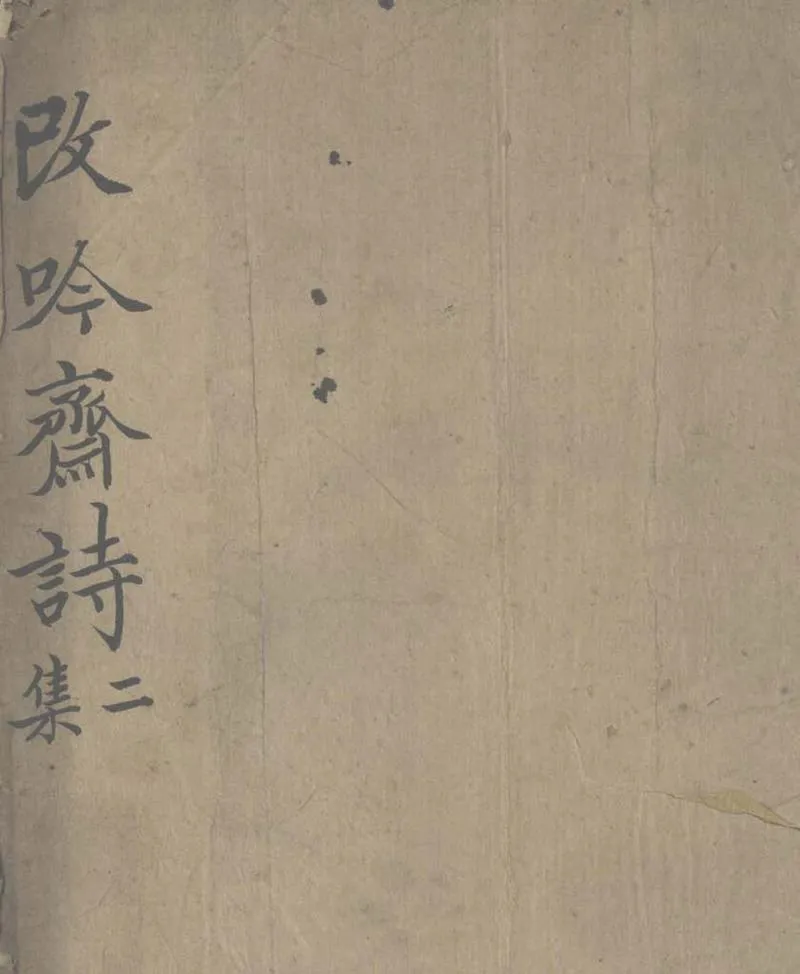 改吟齋詩二集